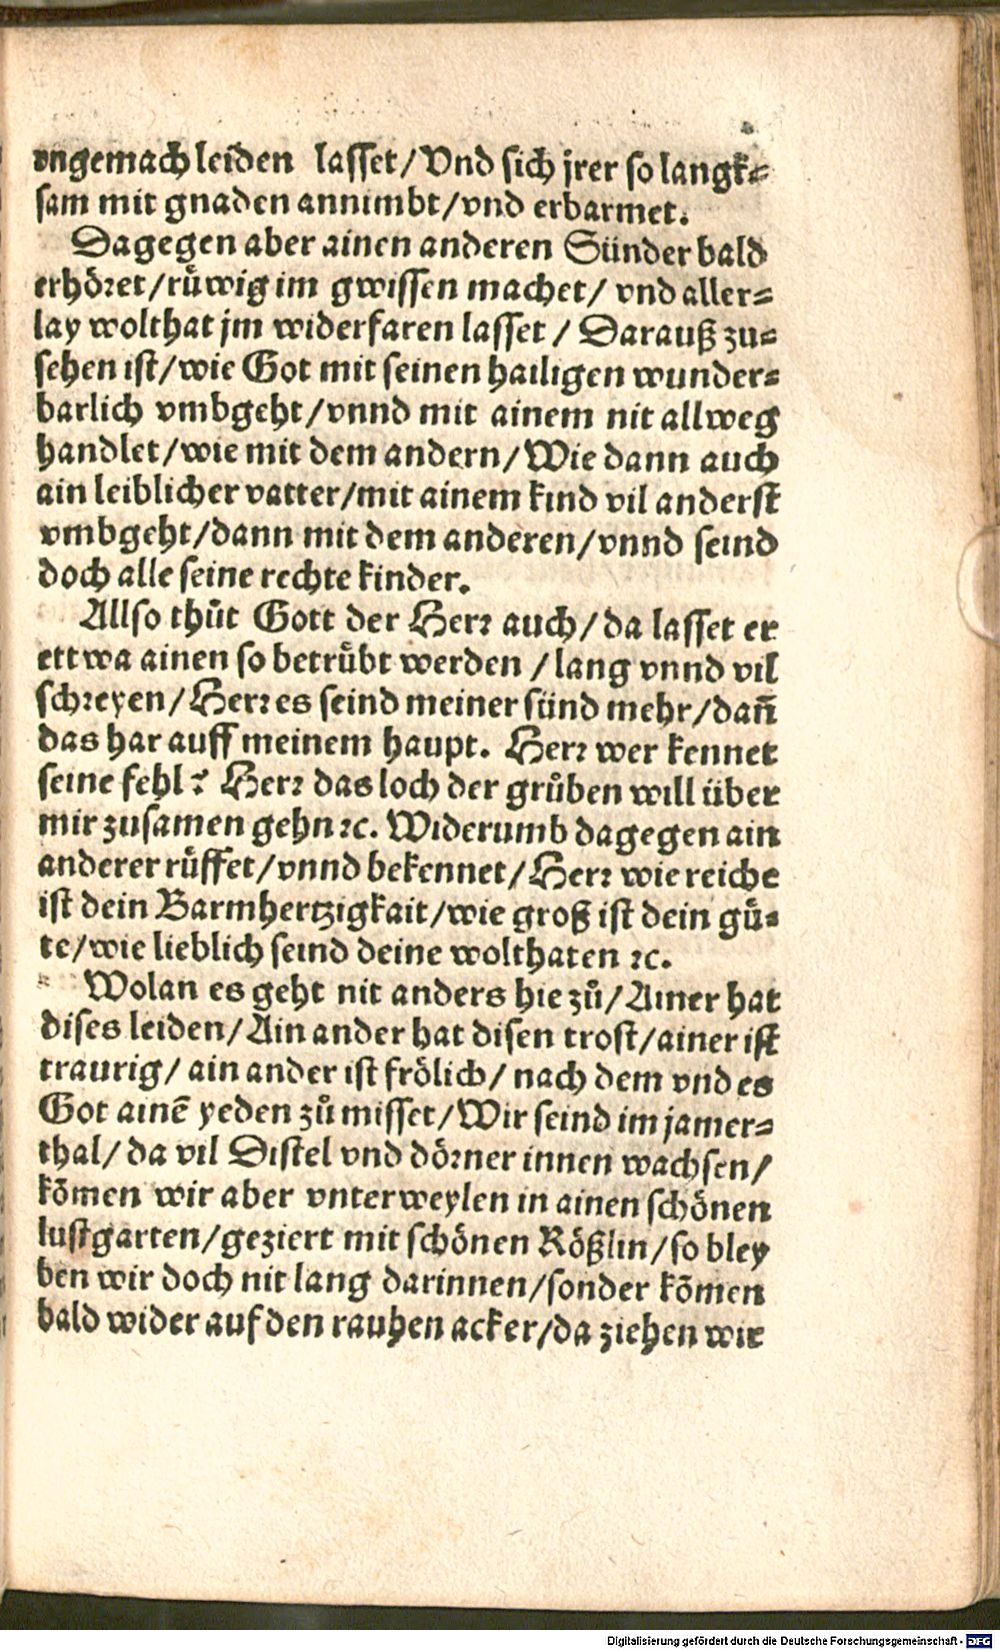 vngemach leiden lasset/Vnd sich jrer so langk⸗
sam mit gnaden annimbt/vnd erbarmet.
Dagegen aber ainen anderen Sünder bald
erhöret/rüwig im gwissen machet/ vnd aller⸗
lay wolthat jm widerfaren lasset / Darauß zu⸗
sehen ist/wie Got mit seinen hailigen wunder⸗
barlich vmbgeht/vnnd mit ainem nit allweg
handlet/wie mit dem andern/Wie dann auch
ain leiblicher vatter/mit ainem kind vil anderst
vmbgeht/dann mit dem anderen/vnnd seind
doch alle seine rechte kinder.
Allso thůt Gott der Herr auch/da lasset er
ettwa ainen so betrůbt werden /lang vnnd vil
schreyen/Herr es seind meiner sünd mehr/dañ
das har auff meinem haupt. Herr wer kennet
seine fehl? Herr das loch der grůben will über
mir zusamen gehn ⁊c. Widerumb dagegen ain
anderer růffet/vnnd bekennet/Herr wie reiche
ist dein Barmhertzigkait/wie groß ist dein gů⸗
te/wie lieblich seind deine wolthaten ⁊c.
Wolan es geht nit anders hie zů/Ainer hat
dises leiden/Ain ander hat disen trost/ainer ist
traurig/ ain ander ist frölich/ nach dem vnd es
Got ainē yeden zů misset/Wir seind im jamer⸗
thal/da vil Distel vnd dörner innen wachsen/
kōmen wir aber vnterweylen in ainen schönen
lustgarten/geziert mit schönen Rößlin/so bley
ben wir doch nit lang darinnen/sonder kōmen
bald wider auf den rauhen acker/da ziehen wir
Digitalisierung gefördert durch die Deutsche Forschungsgemeinschaft - DFG